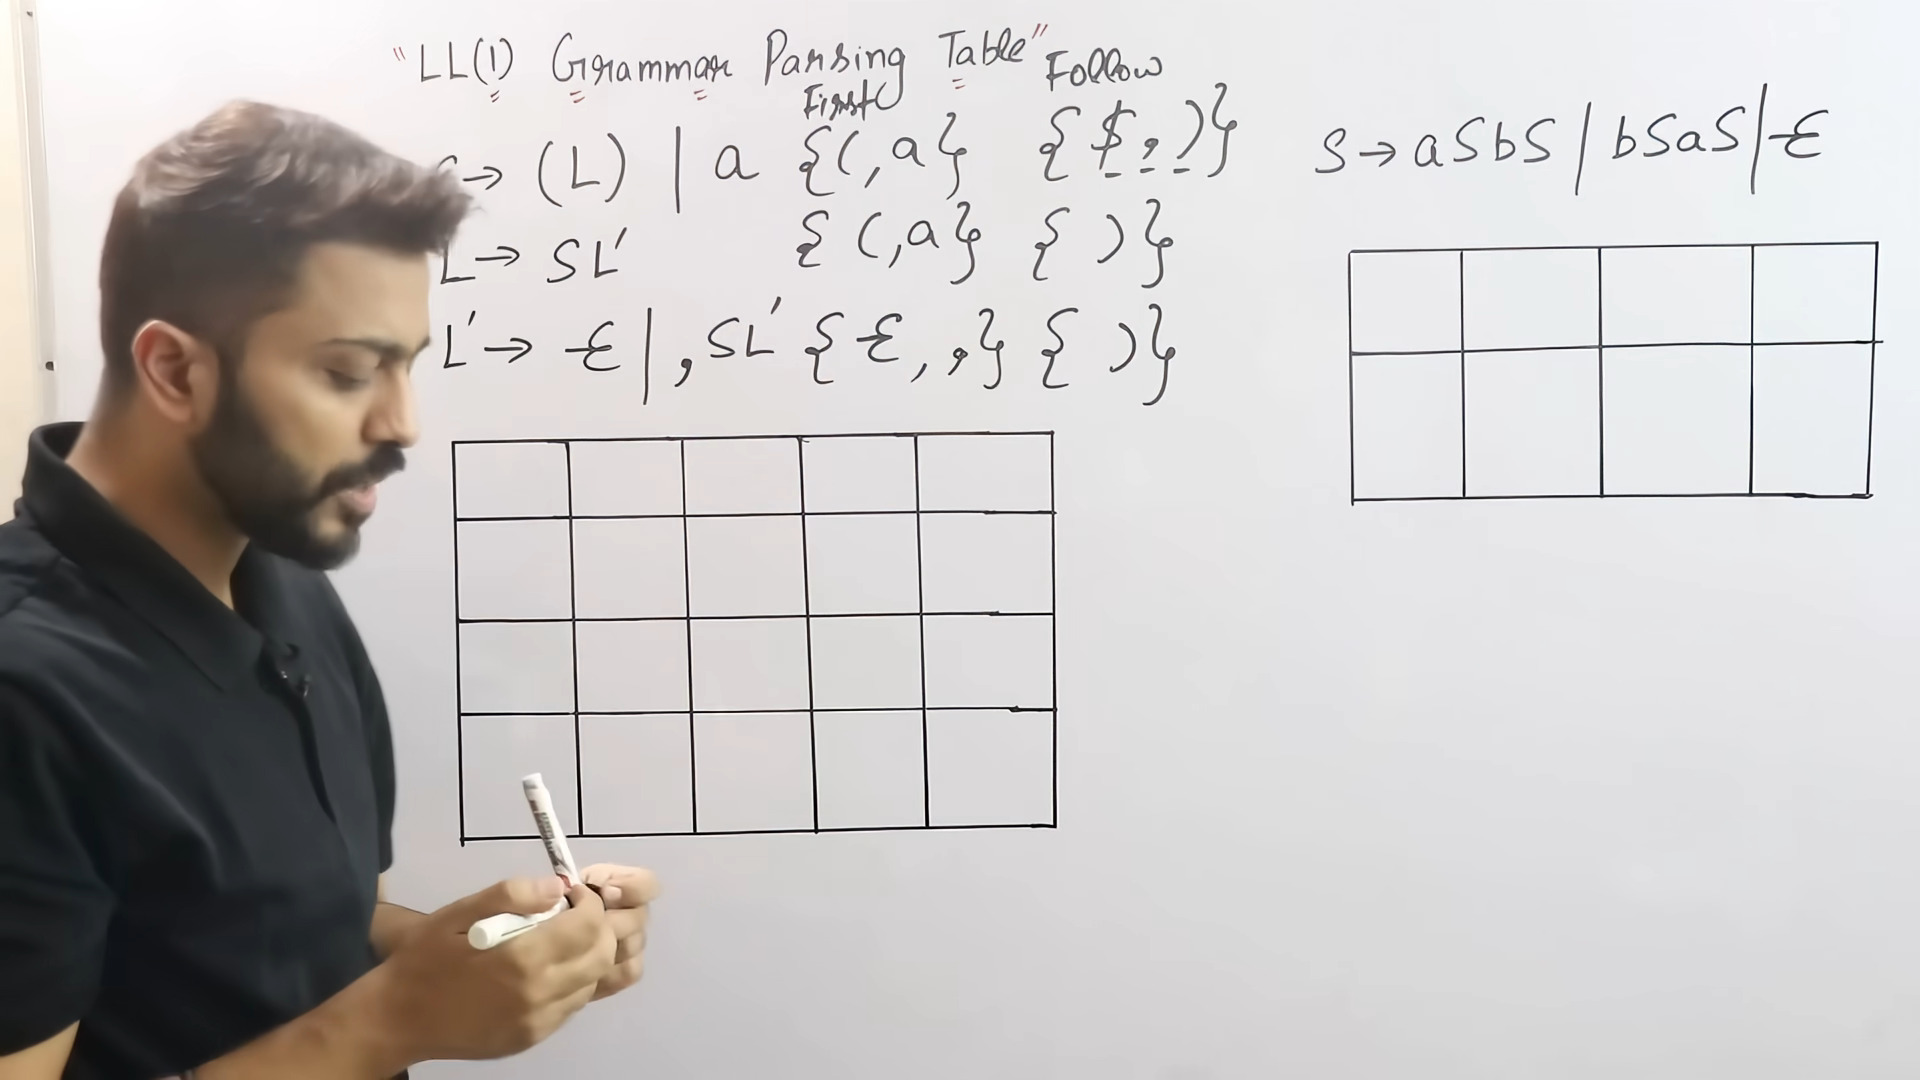 "LL(1) Grammar Parsing Table"
First Follow
→ (L) | a {(,a} {$,,)}
L → SL' {(,a} { )}
L' → Ɛ | ,SL' {Ɛ, ,} { )}
S → aSbS | bSaS | Ɛ